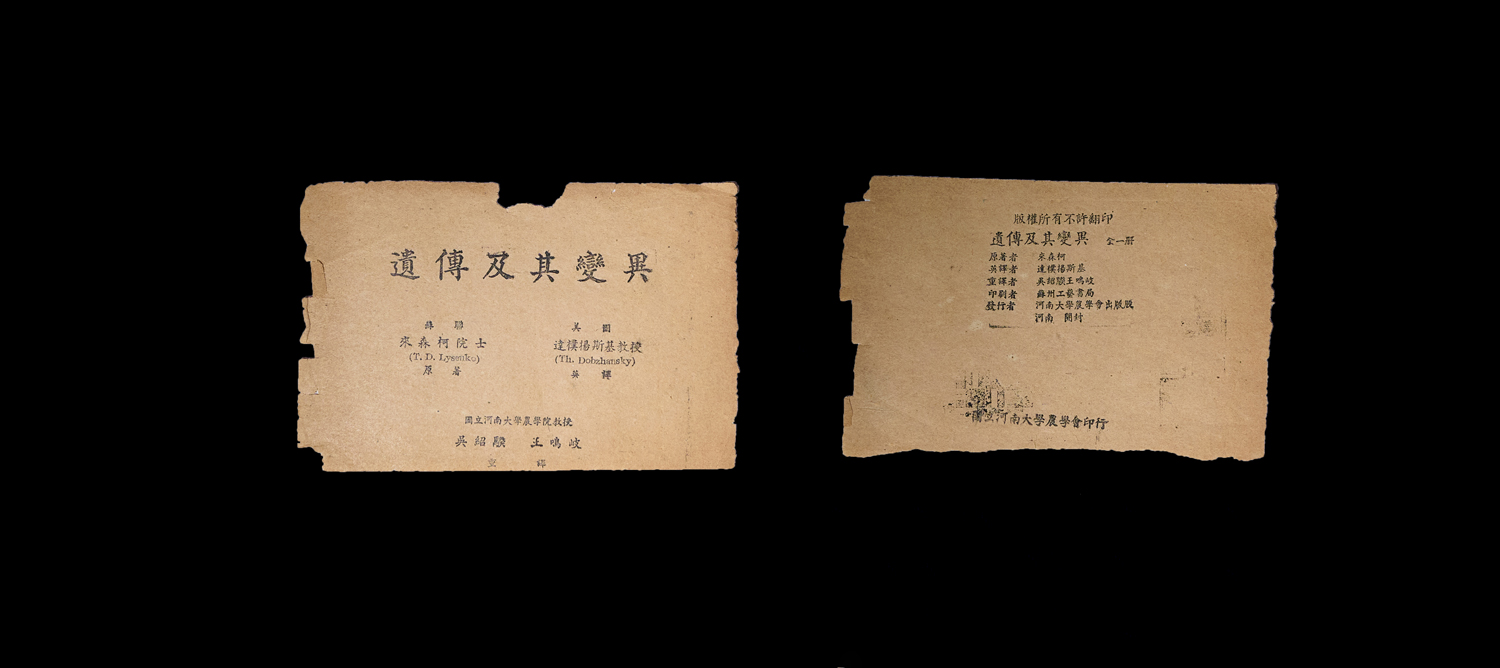 遺傳及其變異
蘇聯
來森柯院士
(T. D. Lysenko)
原著
美國
達樸揚斯基教授
(Th. Dobzhansky)
英譯
國立河南大學農學院教授
吳紹骙 王鳴岐
重譯
版權所有不許翻印
遺傳及其變異 全一冊
原著者 來森柯
英譯者 達樸揚斯基
重譯者 吳紹骙王鳴岐
印刷者 蘇州工藝書局
發行者 河南大學農學會出版股
河南 開封
國立河南大學農學會印行